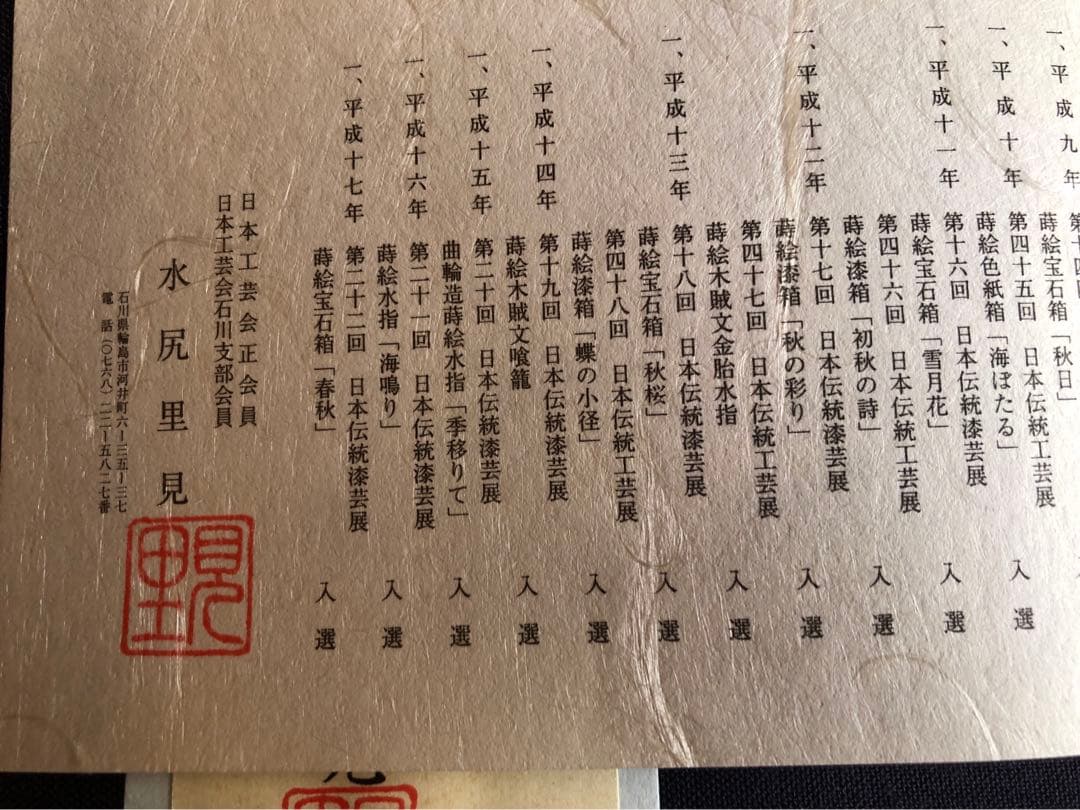 一、平成九年
第十四回
蒔絵宝石箱「秋日」
一、平成十年 第四十五回 日本伝統工芸展
蒔絵色紙箱「海ぼたる」 入選
一、平成十一年 第十六回 日本伝統漆芸展
蒔絵宝石箱「雪月花」 入選
第四十六回 日本伝統工芸展
蒔絵漆箱「初秋の詩」 入選
一、平成十二年 第十七回 日本伝統漆芸展
蒔絵漆箱「秋の彩り」 入選
第四十七回 日本伝統工芸展
蒔絵木賊文金胎水指 入選
一、平成十三年 第十八回 日本伝統漆芸展
蒔絵宝石箱「秋桜」 入選
第四十八回 日本伝統工芸展
蒔絵漆箱「蝶の小径」 入選
一、平成十四年 第十九回 日本伝統漆芸展
蒔絵木賊文喰籠 入選
一、平成十五年 第二十回 日本伝統漆芸展
曲輪造蒔絵水指「季移りて」 入選
一、平成十六年 第二十一回 日本伝統漆芸展
蒔絵水指「海鳴り」 入選
一、平成十七年 第二十二回 日本伝統漆芸展
蒔絵宝石箱「春秋」 入選
日本工芸会正会員
日本工芸会石川支部会員
水尻里見
石川県輪島市河井町六ー三五ー三七
電話(〇七六八)二二ー五八二七番
里見